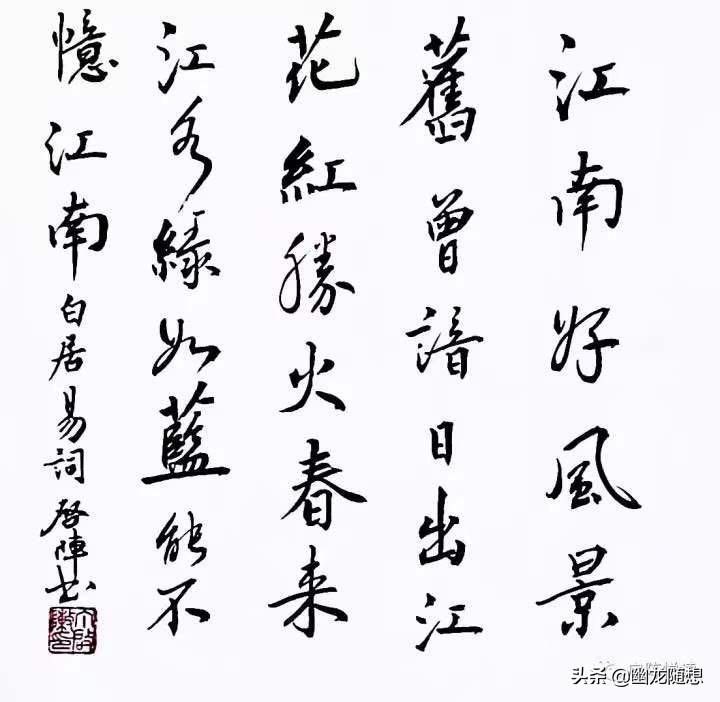 江南好風景
舊曾諳日出江
花紅勝火春来
江水緑如藍能不
憶江南白居易詞啓陣书
头条 @幽龙随想